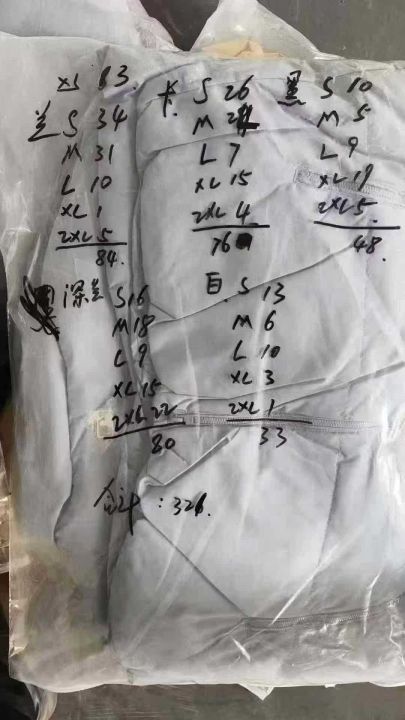 XS 3
兰 S 34
M 31
L 10
XL 1
2XL 5
84.
卡 S 26
M 24
L 7
XL 15
2XL 4
76
黑 S 10
M 5
L 9
XL 19
2XL 5
48.
深兰 S 16
M 18
L 9
XL 15
2XL 22
80
白 S 13
M 6
L 10
XL 3
2XL 1
33
合计：321.